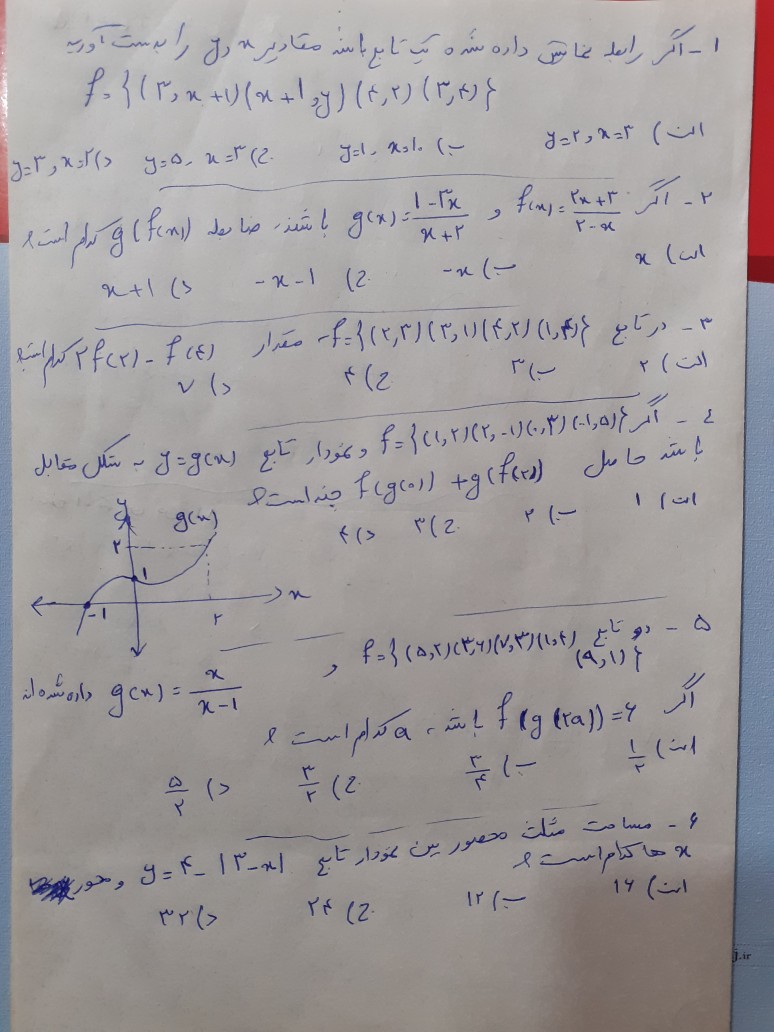 ۱- اگر رابطه نمایش داده شده یک تابع باشد مقادیر x و y را بدست آورید
f = {(۳, x+1) (x+1, y) (۴,۲) (۳,۴)}
الف) x=۳ و y=۲ ب) x=1. , y=1 ج) x=۳ , y=۵ د) x=۲ و y=۳
۲- اگر f(x) = (۲x+۳)/(۲-x) و g(x) = (1-۳x)/(x+۲) باشند، ضابطه g(f(x)) کدام است؟
الف) x ب) -x ج) -x-1 د) x+1
۳- در تابع f={(۲,۳)(۳,۱)(۴,۲)(۱,۴)} مقدار ۲f(۲) - f(۴) کدام است؟
الف) ۲ ب) ۳ ج) ۴ د) ۷
٤- اگر f={(۱,۲)(۲,-۱)(۰,۳)(-۱,۵)} و نمودار تابع y=g(x) به شکل مقابل
باشد حاصل f(g(۰)) + g(f(۲)) چند است؟
الف) ۱ ب) ۲ ج) ۳ د) ۴
y g(x)
۲
1
-1 ۲ x
۵- دو تابع f={(۵,۲)(۳,۶)(۷,۳)(۱,۴)
(۹,۱)} و
g(x) = x/(x-1) داده شده اند
اگر f(g(۲a))=۶ باشد، a کدام است؟
الف) ۱/۲ ب) ۳/۴ ج) ۳/۲ د) ۵/۲
۶- مساحت مثلث محصور بین نمودار تابع y=۴-|۳-x| و محور
x ها کدام است؟
الف) ۱۶ ب) ۱۲ ج) ۲۴ د) ۳۲
j.ir